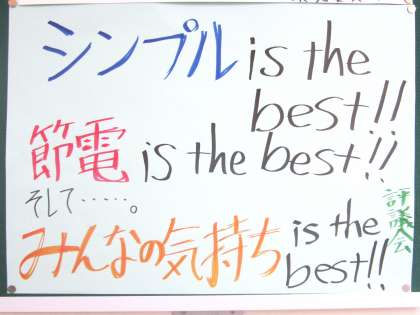 シンプル is the
best!!
節電 is the best!!
そして……。
みんなの気持ち is the
best!!
評議会